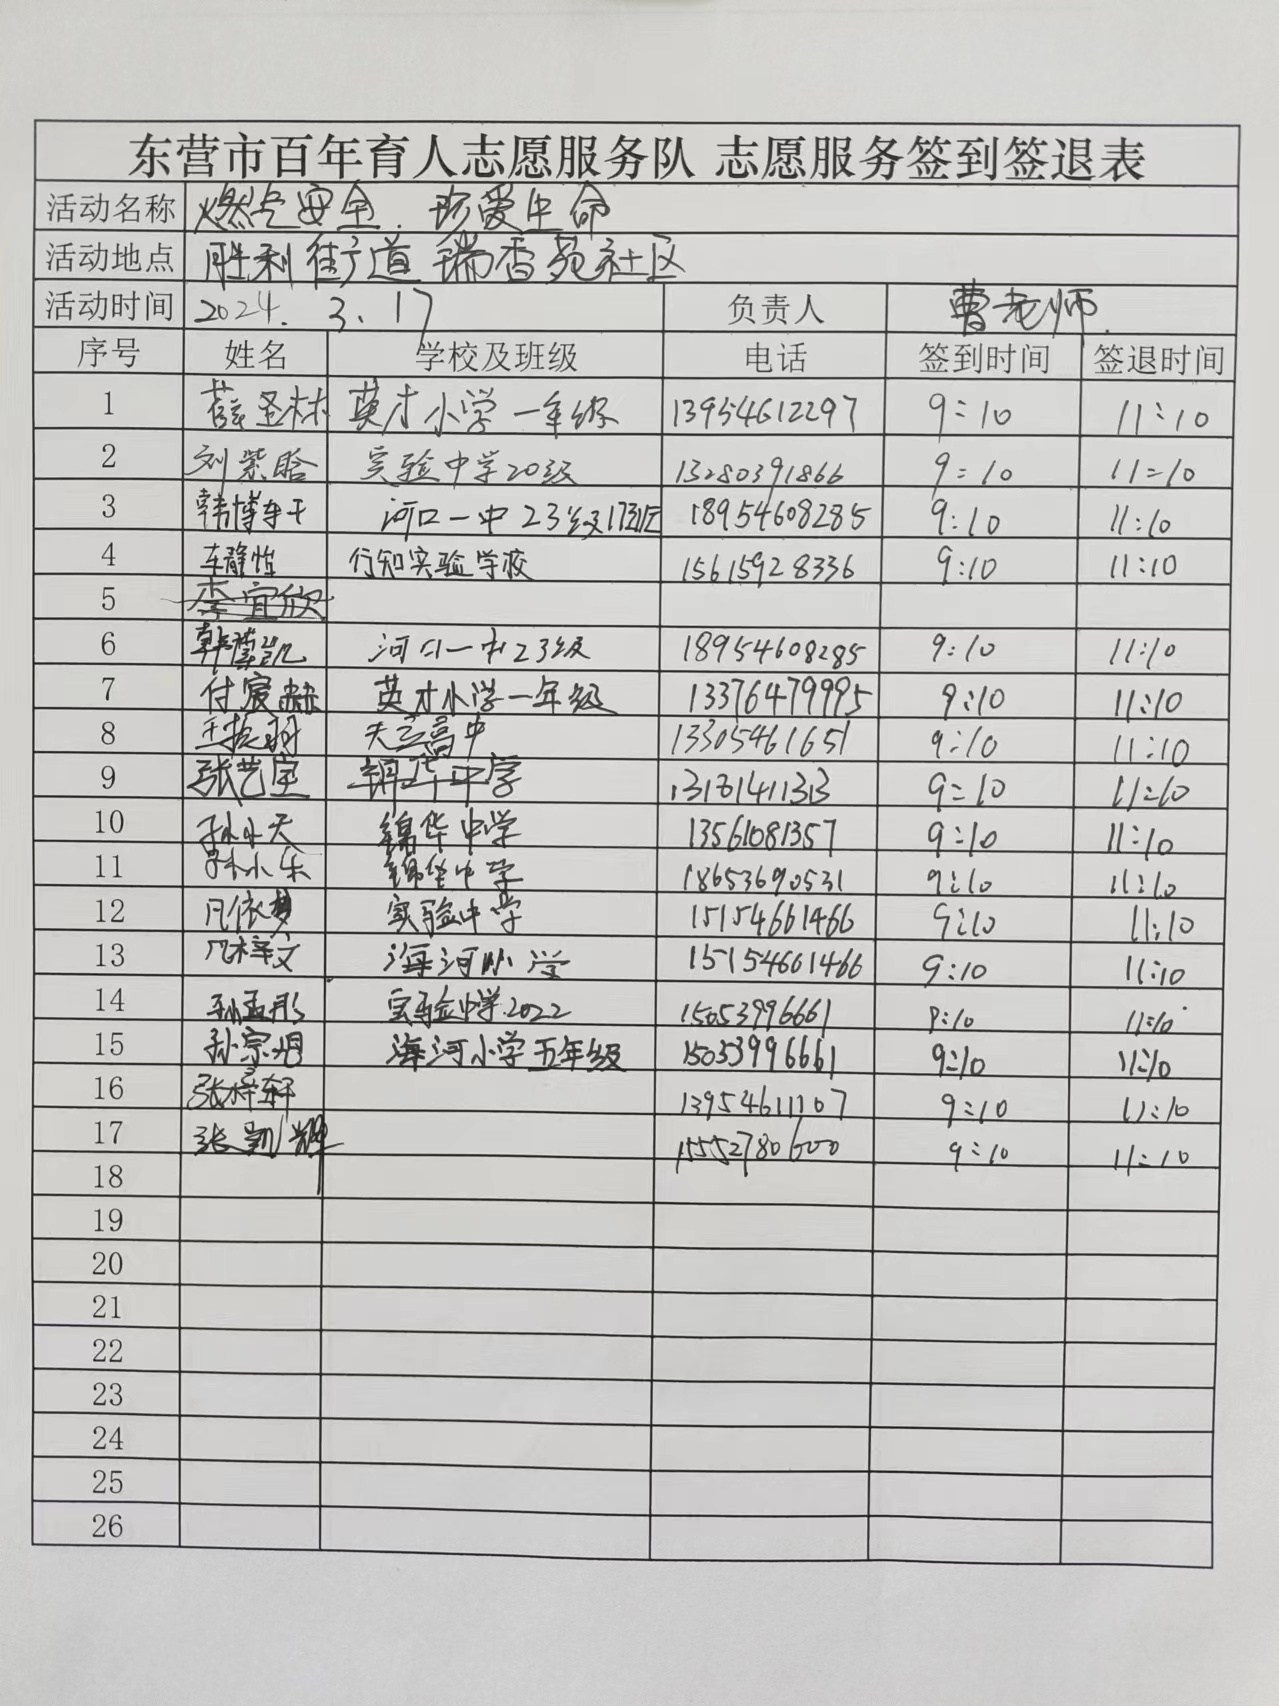 东营市百年育人志愿服务队 志愿服务签到签退表
活动名称 燃气安全.珍爱生命
活动地点 胜利街道瑞香苑社区
活动时间 2024. 3. 17 负责人 曹老师.
序号 姓名 学校及班级 电话 签到时间 签退时间
1 薛圣林 英才小学一年级 13954612297 9:10 11:10
2 刘紫晗 实验中学20级 13280391866 9:10 11:10
3 韩博 河口一中23级17班 18954608285 9:10 11:10
4 车静怡 行知实验学校 15615928336 9:10 11:10
5 李宜欣
6 韩 凯 河口一中23级 18954608285 9:10 11:10
7 付宸赫 英才小学一年级 13376479995 9:10 11:10
8 王振羽 天立高中 13305461651 9:10 11:10
9 张艺宝 锦华中学 9:10 11:10
10 孙小天 锦华中学 13561081357 9:10 11:10
11 孙小乐 锦华中学 18653690531 9:10 11:10
12 依梦 实验中学 15154661466 9:10 11:10
13 梓文 海河小学 15154661466 9:10 11:10
14 孙孟彤 实验中学2022 15053996661 9:10 11:10
15 孙宗 海河小学五年级 15053996661 9:10 11:10
16 张梓轩 13954611107 9:10 11:10
17 张凯辉 15552780600 9:10 11:10
18
19
20
21
22
23
24
25
26